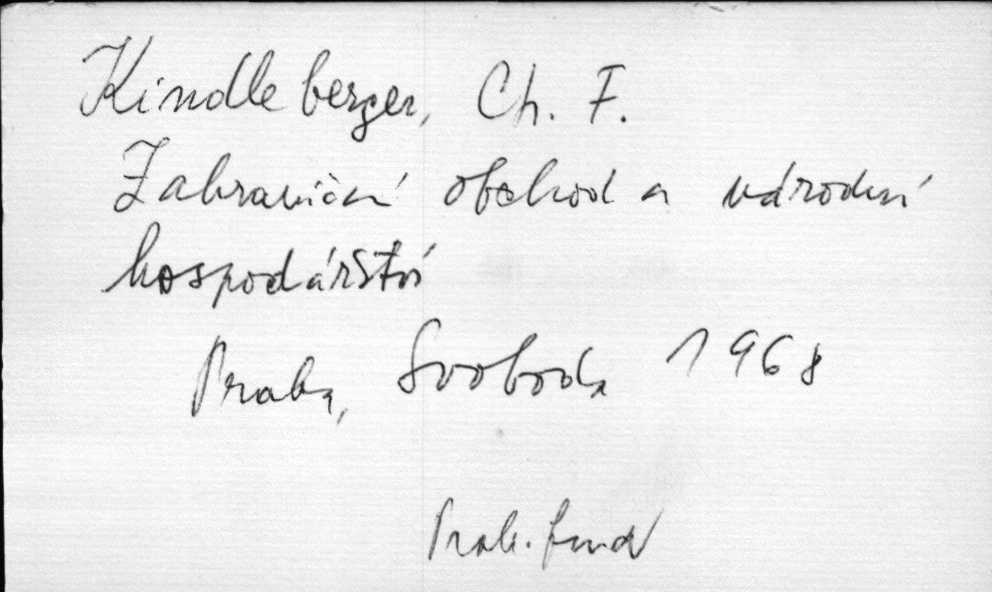 Kindleberger, Ch. F.
Zahraniční obchod a národní
hospodářství
Praha, Svoboda 1968